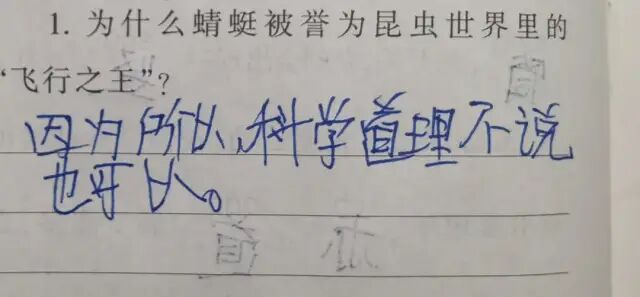 1. 为什么蜻蜓被誉为昆虫世界里的
“飞行之王”?
因为所以,科学道理不说
也可以。